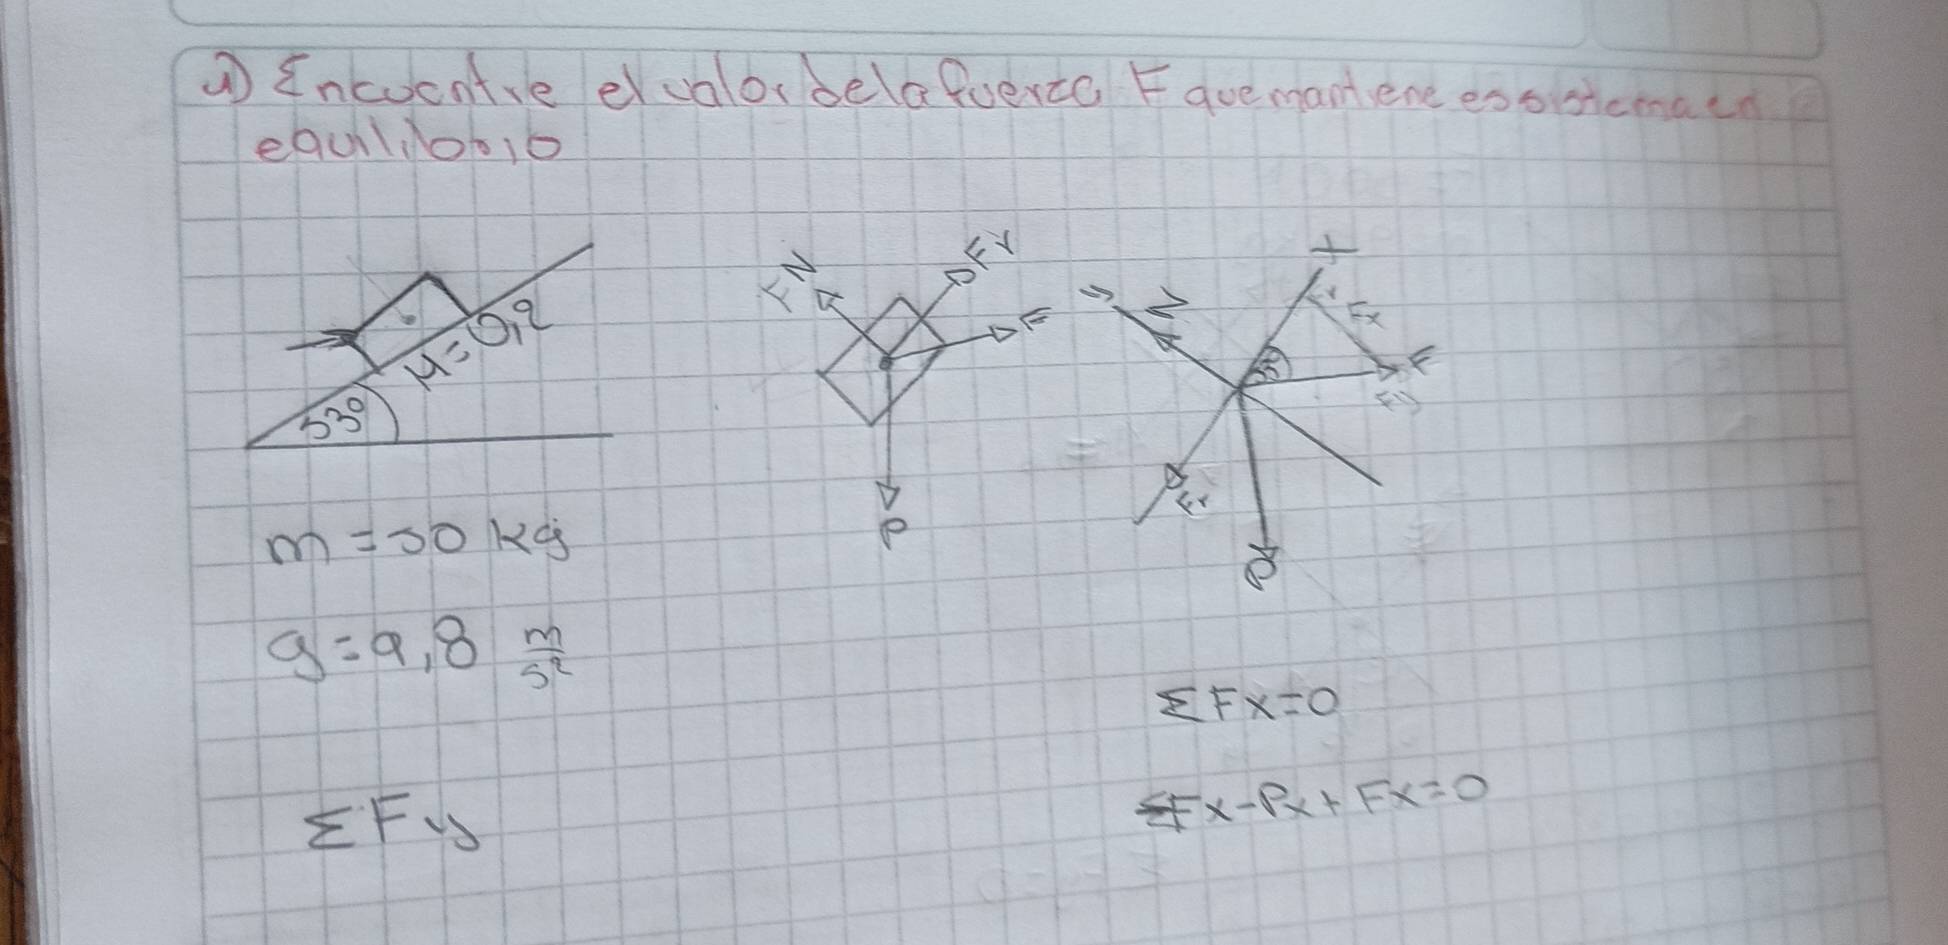 a) Encuentre el valor de la fuerza F que mantiene el sistema en
equilibrio
FN
Fr
F
P
y
N
x
Fx
F
Fy
Fr
P
μ=0,2
53°
m = 50 kg
g = 9,8 m/s²
ΣFx=0
ΣFy
Fx-Px+Fx=0